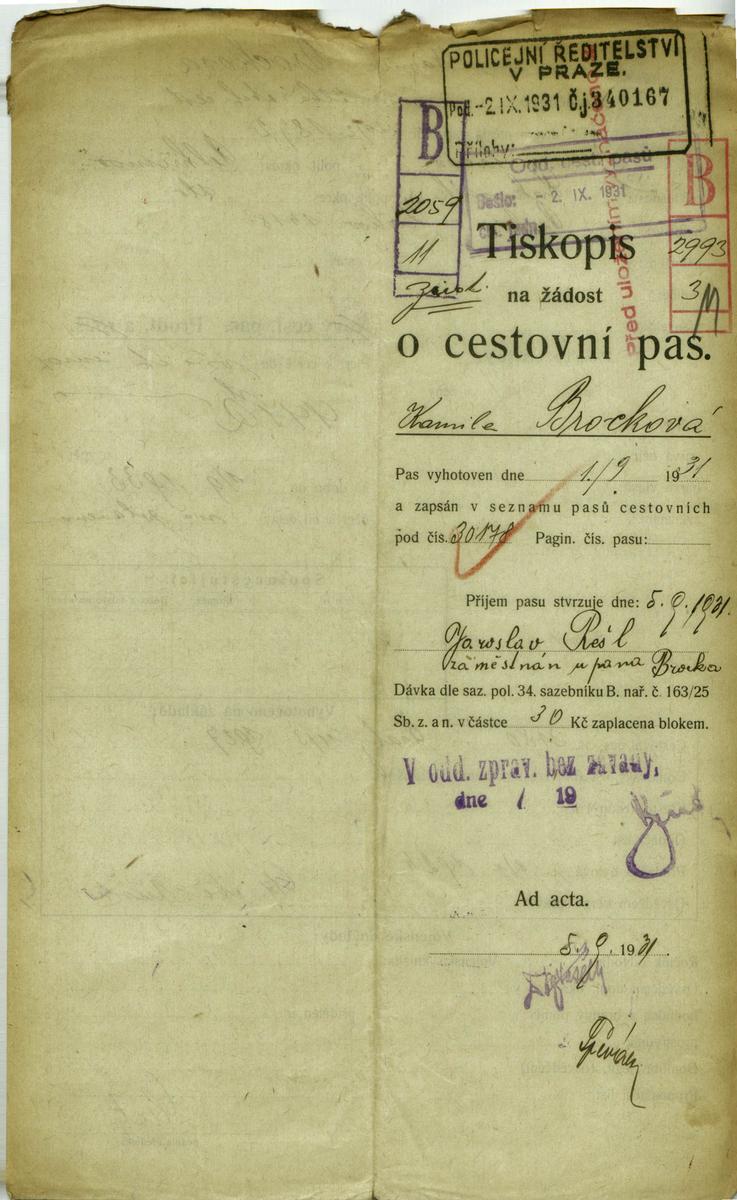 POLICEJNÍ ŘEDITELSTVÍ
V PRAZE.
Pod. -2.IX.1931 Č.j. 340167
Přílohy:
Odd. cest. pasů
Došlo: - 2. IX. 1931
B
2059
11
B
2993
3
Tiskopis
na žádost
o cestovní pas.
Kamila Brocková
Pas vyhotoven dne 1./9 1931
a zapsán v seznamu pasů cestovních
pod čís. 30178 Pagin. čís. pasu:
Příjem pasu stvrzuje dne: 5. 9. 1931.
Jaroslav Rešl
zaměstnán u pana Brocka
Dávka dle saz. pol. 34. sazebníku B. nař. č. 163/25
Sb. z. a n. v částce 30 Kč zaplacena blokem.
V odd. zprav. bez závady,
dne / 19
Ad acta.
5. 9. 1931.